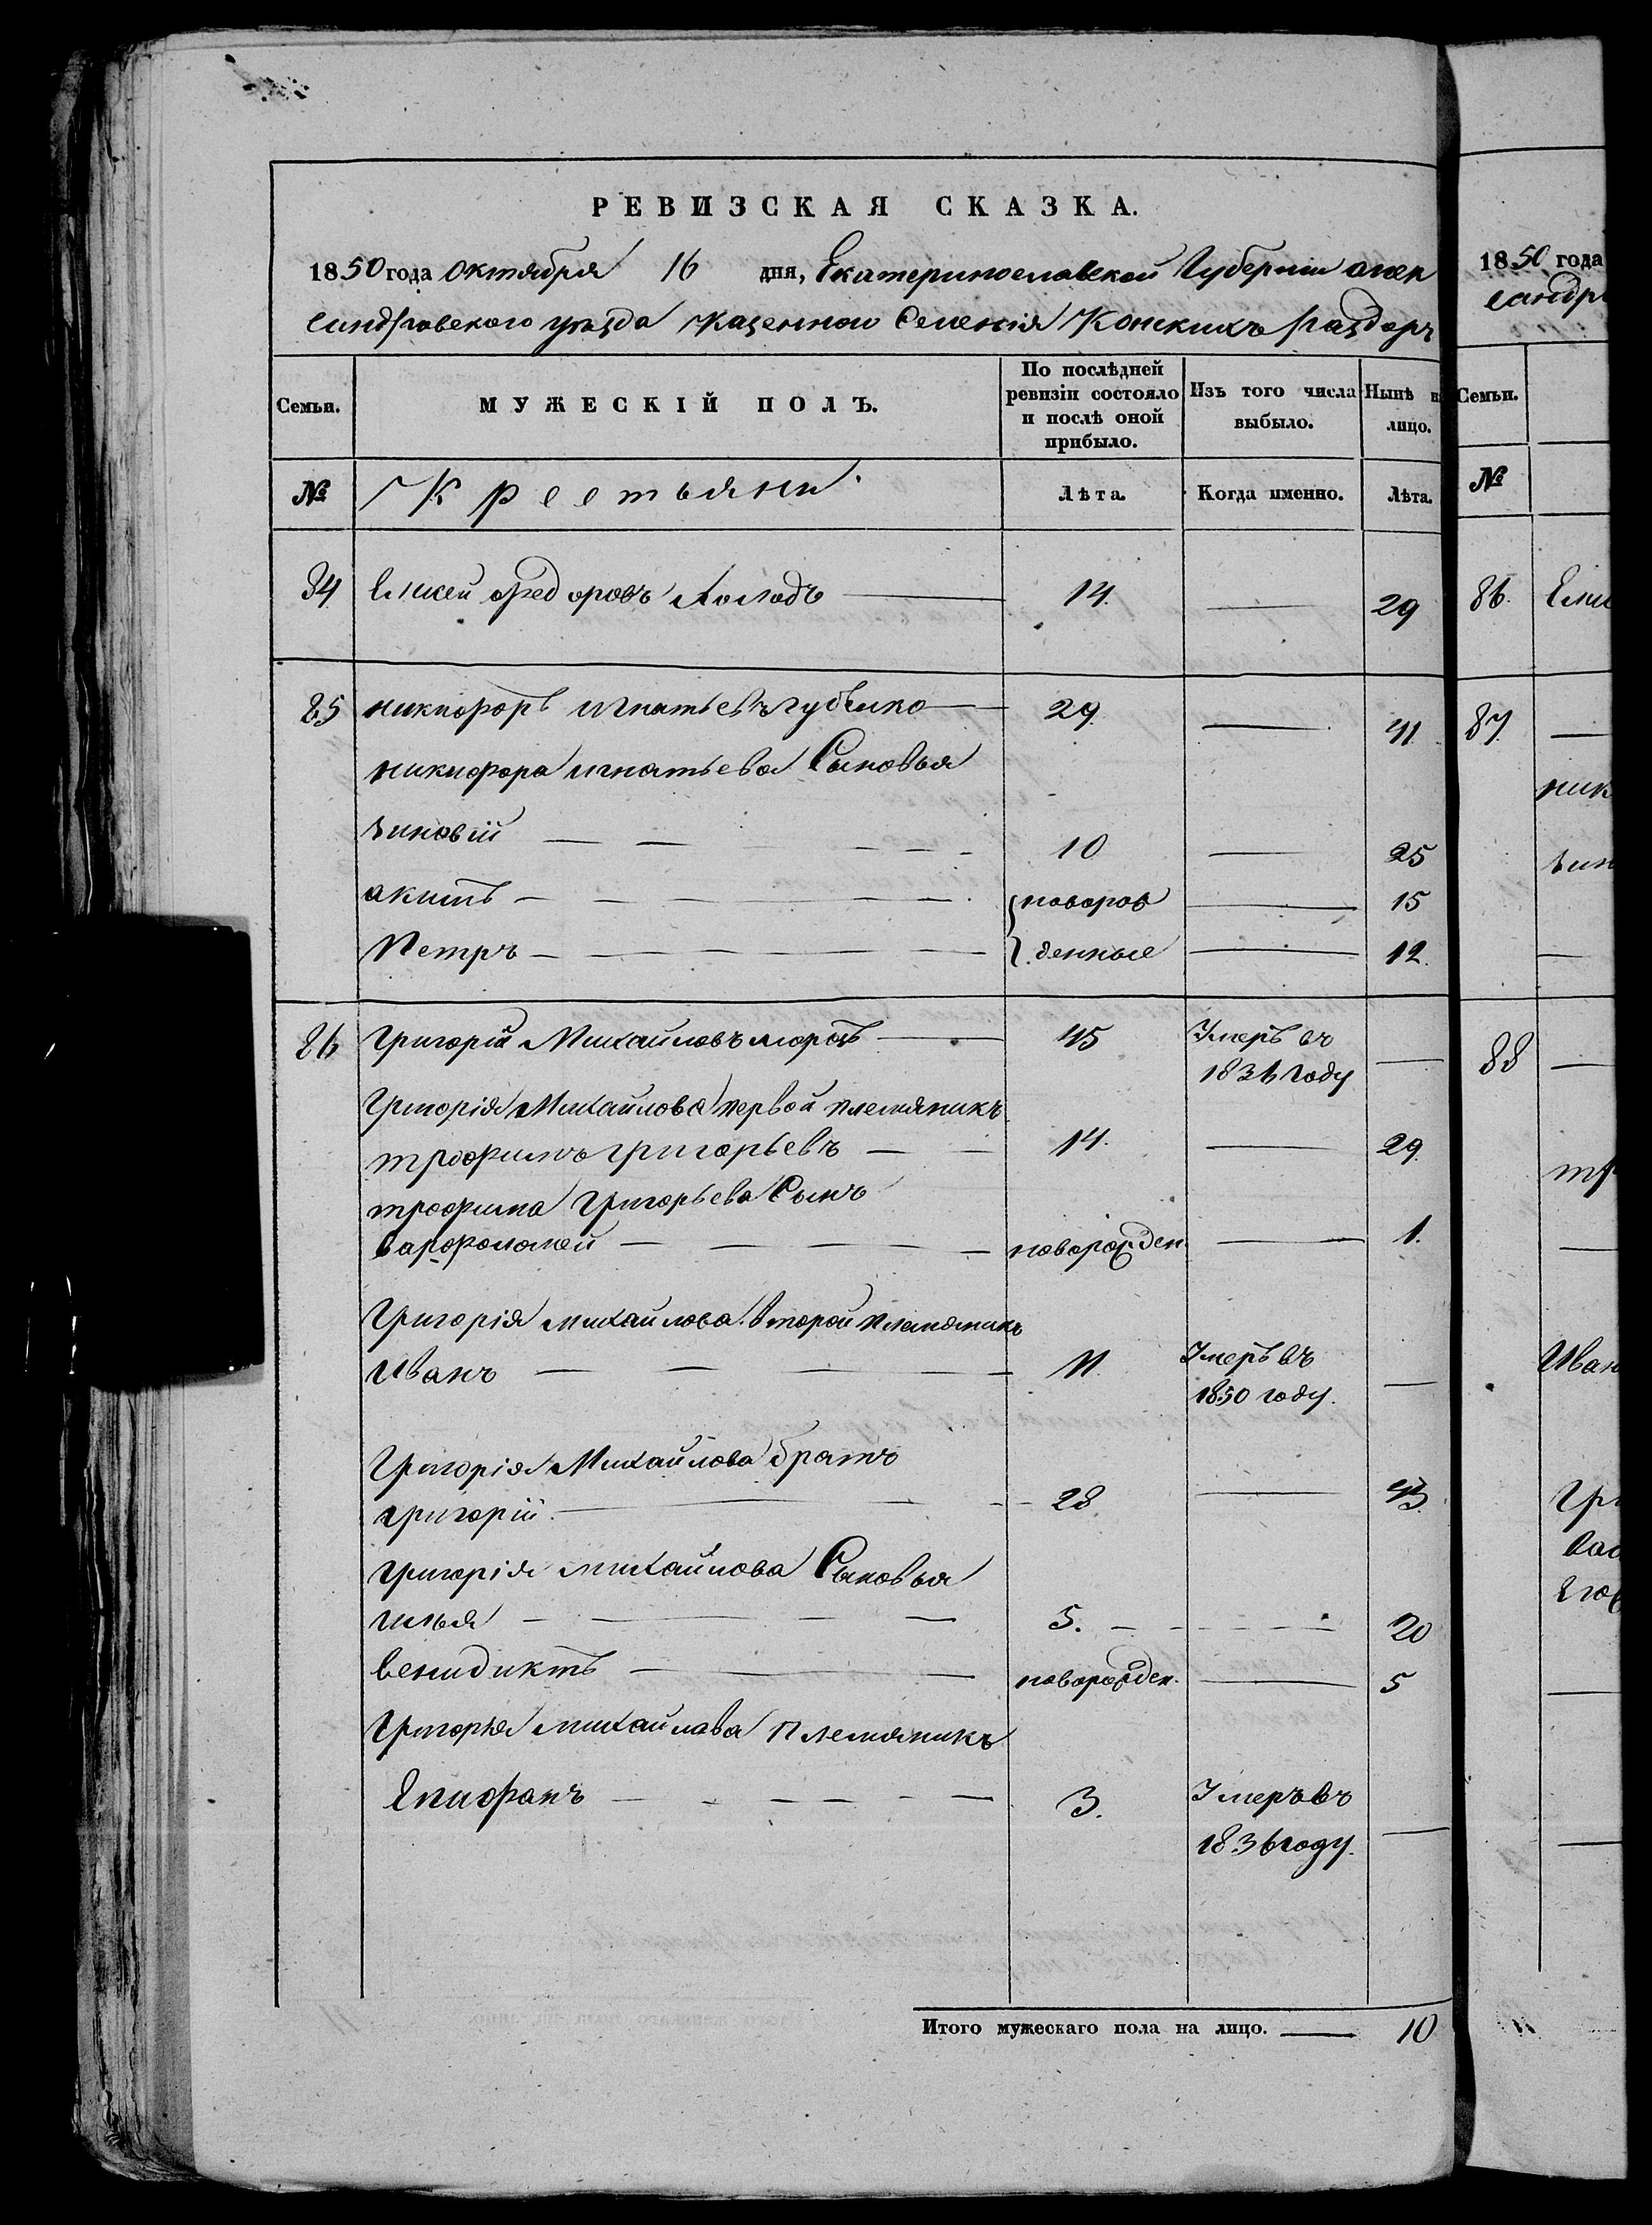 РЕВИЗСКАЯ СКАЗКА.
1850 года октября 16 дня, Екатеринославской Губернии алек
сандровского уезда казенного Селения Конскихъ Раздоръ
Семьи. МУЖЕСКІЙ ПОЛЪ. По послѣдней ревизіи состояло и послѣ оной прибыло. Изъ того числа выбыло. Нынѣ на лицо.
№ Крестьяни Лѣта. Когда именно. Лѣта.
84 Елисей Федоровъ Холодъ 14. — 29
85 никифоръ игнатьевъ губенко 29. — 41.
никифора игнатьева Сыновья
зиновій 10 — 25
акимъ новорож — 15
Петръ денные — 12.
86 Григорій Михайловъ морозъ 45 Умеръ въ —
1836 году
Григорія Михайлова первой племяникъ
трофимъ григорьевъ 14. — 29.
трофима григорьева Сынъ
варфоломей новорожден. — 1.
Григорія михайлова второй племяникъ
Иванъ 11. Умеръ въ
1850 году. —
Григорія Михайлова братъ
григорій 28 — 43.
григорія михайлова Сыновья
илья 5. — 20
венидиктъ новорожден. — 5
Григорія михайлава племяникъ
Епифанъ 3. Умеръ въ
1836 году. —
Итого мужескаго пола на лицо. — 10
1850 года
сандр
Семьи.
№
86.
87.
ник
зин
88
тр
Иван
Гри